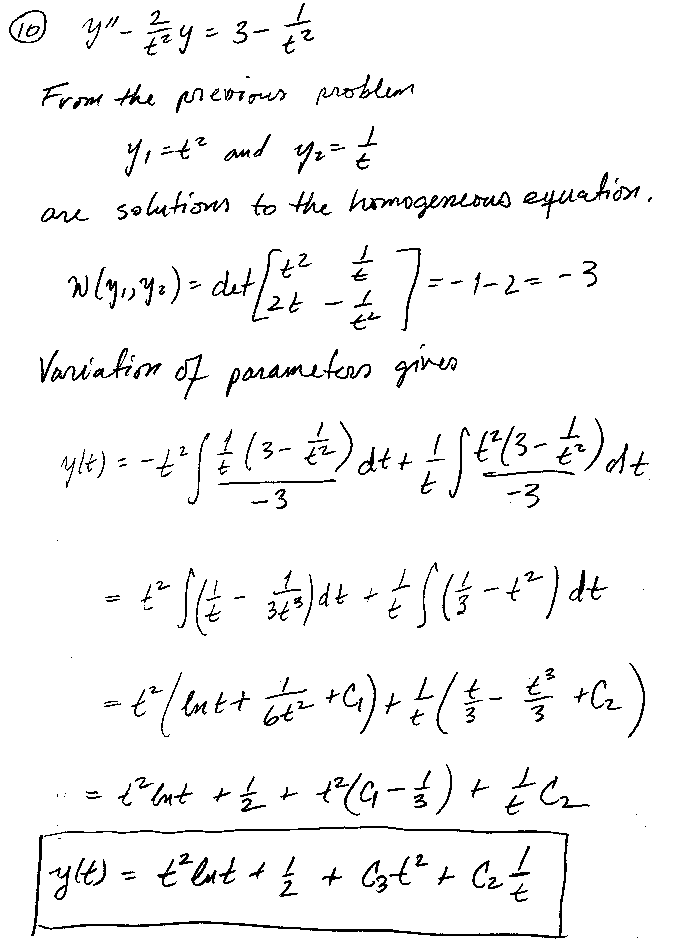 ⑩ y'' - 2/t² y = 3 - 1/t²
From the previous problem
y₁ = t² and y₂ = 1/t
are solutions to the homogeneous equation.
W(y₁, y₂) = det [t² 1/t; 2t -1/t²] = -1-2 = -3
Variation of parameters gives
y(t) = -t² ∫ (1/t (3 - 1/t²))/(-3) dt + 1/t ∫ (t²(3 - 1/t²))/(-3) dt
= t² ∫ (1/t - 1/(3t³)) dt + 1/t ∫ (1/3 - t²) dt
= t² (ln t + 1/(6t²) + C₁) + 1/t (t/3 - t³/3 + C₂)
= t² ln t + 1/2 + t²(C₁ - 1/3) + 1/t C₂
y(t) = t² ln t + 1/2 + C₃t² + C₂ 1/t